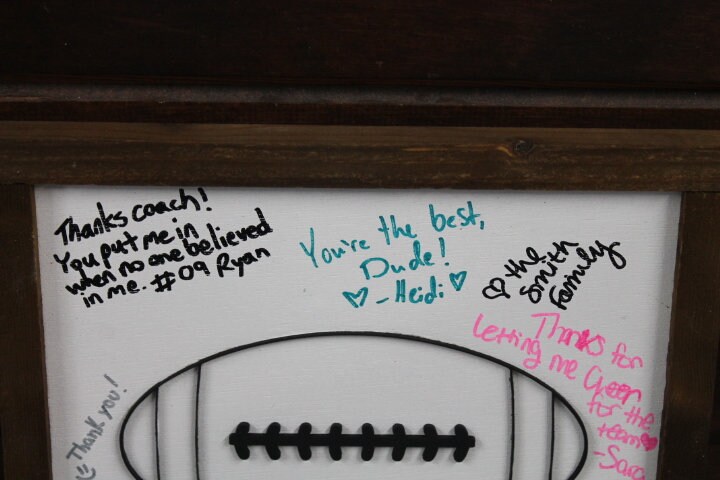 Thanks coach!
You put me in
when no one believed
in me. #09 Ryan
You're the best,
Dude!
♡ - Heidi ♡
♡ the
Smith
Family
Thanks for
letting me Cheer
for the
team♥
-Sara
Thank you!